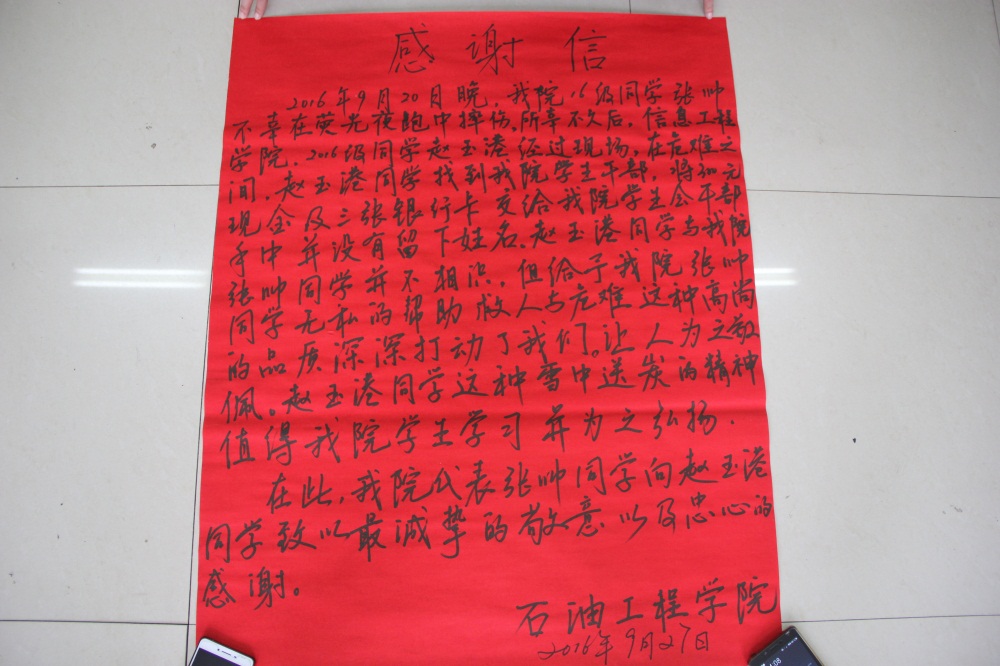 感谢信
2016年9月20日晚，我院16级同学张帅
不幸在荧光夜跑中摔伤，所幸不久后，信息工程
学院，2016级同学赵玉港经过现场，在危难之
间，赵玉港同学找到我院学生干部，将 元
现金及三张银行卡交给我院学生会干部
手中并没有留下姓名，赵玉港同学与我院
张帅同学并不相识，但给予我院张帅
同学无私的帮助救人与危难这种高尚
的品质深深打动了我们。让人为之敬
佩。赵玉港同学这种雪中送炭的精神
值得我院学生学习并为之弘扬.
在此，我院代表张帅同学向赵玉港
同学致以最诚挚的敬意以及忠心的
感谢。
石油工程学院
2016年9月27日